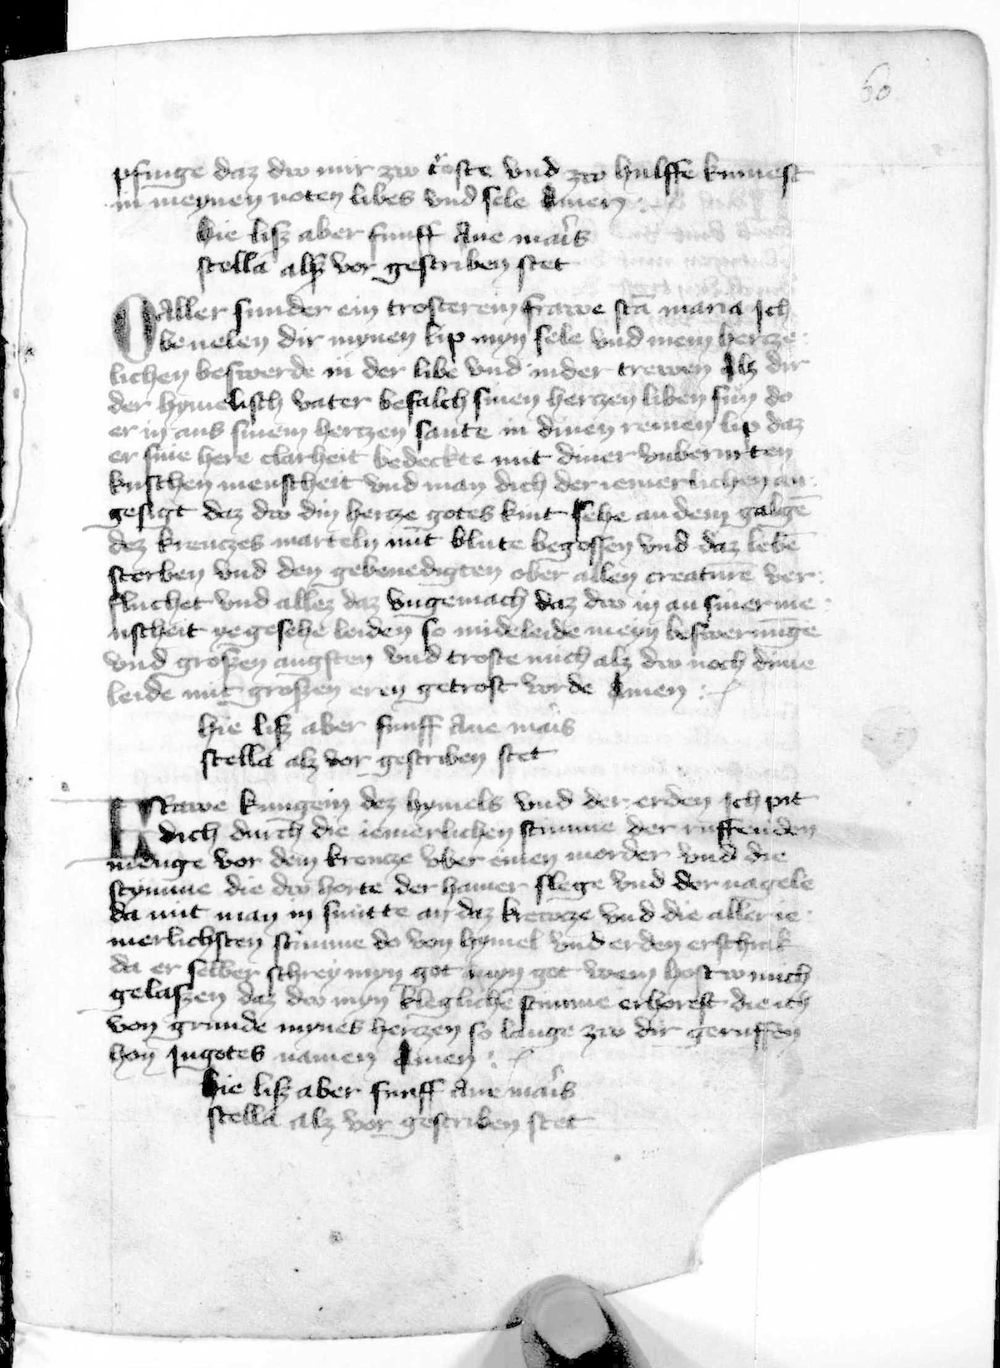 60
pfinge daz dw mir zw troste vnd zw hulffe kumest
in meynen noten libes vnd sele Amen :
hie lisz aber funff Aue maris
stella alsz vor gescriben stet
O Aller sunder ein trosterein frawe sta maria Ich
beuelen dir mynen lip myn sele vnd mein hertze :
lichen beswerde in der libe vnd in der trewen Alz dir
der hymelisch vater befalch sinen hertzen liben sun do
er in aus sinem hertzen sante in dinen reinen lip daz
er sine here clarheit bedeckte mit diner vnberurten
kuschen menscheit vnd man dich der iemerlichen an :
gesigt daz dw din hertze gotes kint sehe an dem galgē
dez kreuczes marteln mit blute begossen vnd daz lebē
sterben vnd den gebenedigten ober allen creaturē ver :
fluchet vnd allez daz vngemach daz dw in an siner me :
nscheit ye gesehe leiden so mideleide meyn beswerunge
vnd groszen angsten vnd troste mich alz dw noch dine
leide mit groszen eren getrost worde Amen :
hie lisz aber funff Aue maris
stella alz vor gescriben stet
FRawe kungein dez hymels vnd der erden Ich pit
dich durch die iemerlichen stimme der ruffenden
menge vor dem kreucze vber einen morder vnd die
stymme die dw horte der hamer slege vnd der nagele
da mit man in smitte an daz krewcze vnd die aller ie :
merlichsten stimme do von hymel vnd erden erschrak
da er selber schrey myn got myn got wem hostw mich
gelaszen daz dw myn kleglichē stimme erhorest die ich
von grunde mynes hertzen so lange zw dir geruffen
hon In gotes namen Amen :
hie lisz aber funff Aue maris
stella alz vor gescriben stet